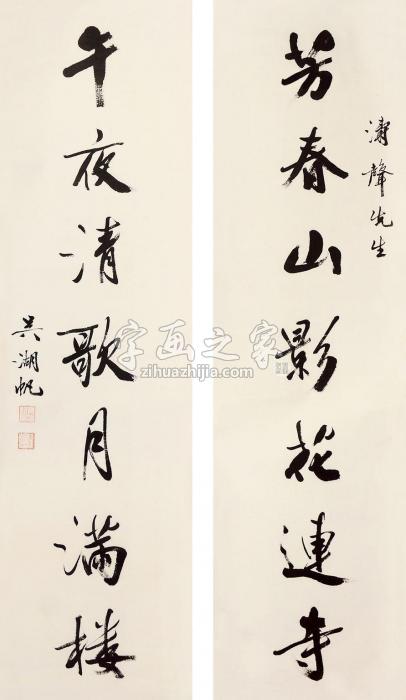 聲先生
芳春山影花連寺
午夜清歌月滿楼
吴湖帆
字画之家
zihuazhijia.com